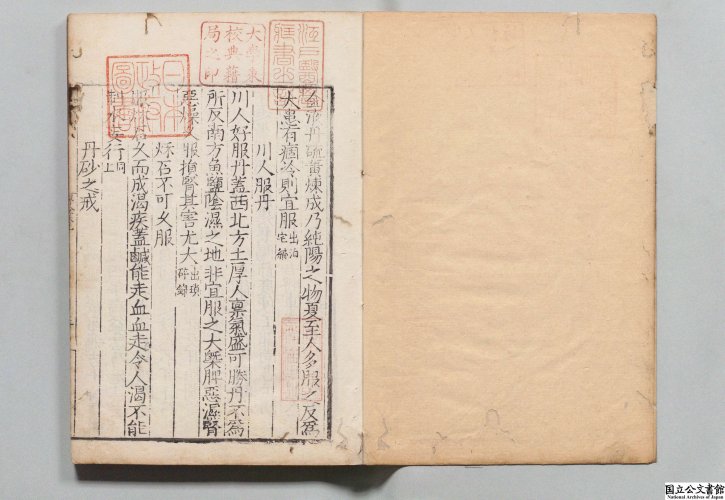 金液丹硫黄煉成乃純陽之物夏至人多服之反爲
大患有痼冷則宜服出泊宅編
川人服丹
川人好服丹蓋西北方土厚人稟氣盛可勝丹不爲
所反南方魚鹽陰濕之地非宜服之大槩脾惡濕腎
惡燥人服損腎其害尤大出瑣碎録
不可久服
久而成渇疾蓋鹹能走血血走令人渇不能
行同上
丹砂之戒
大學東校典籍局之印
日本政府圖書
國立公文書館
National Archives of Japan